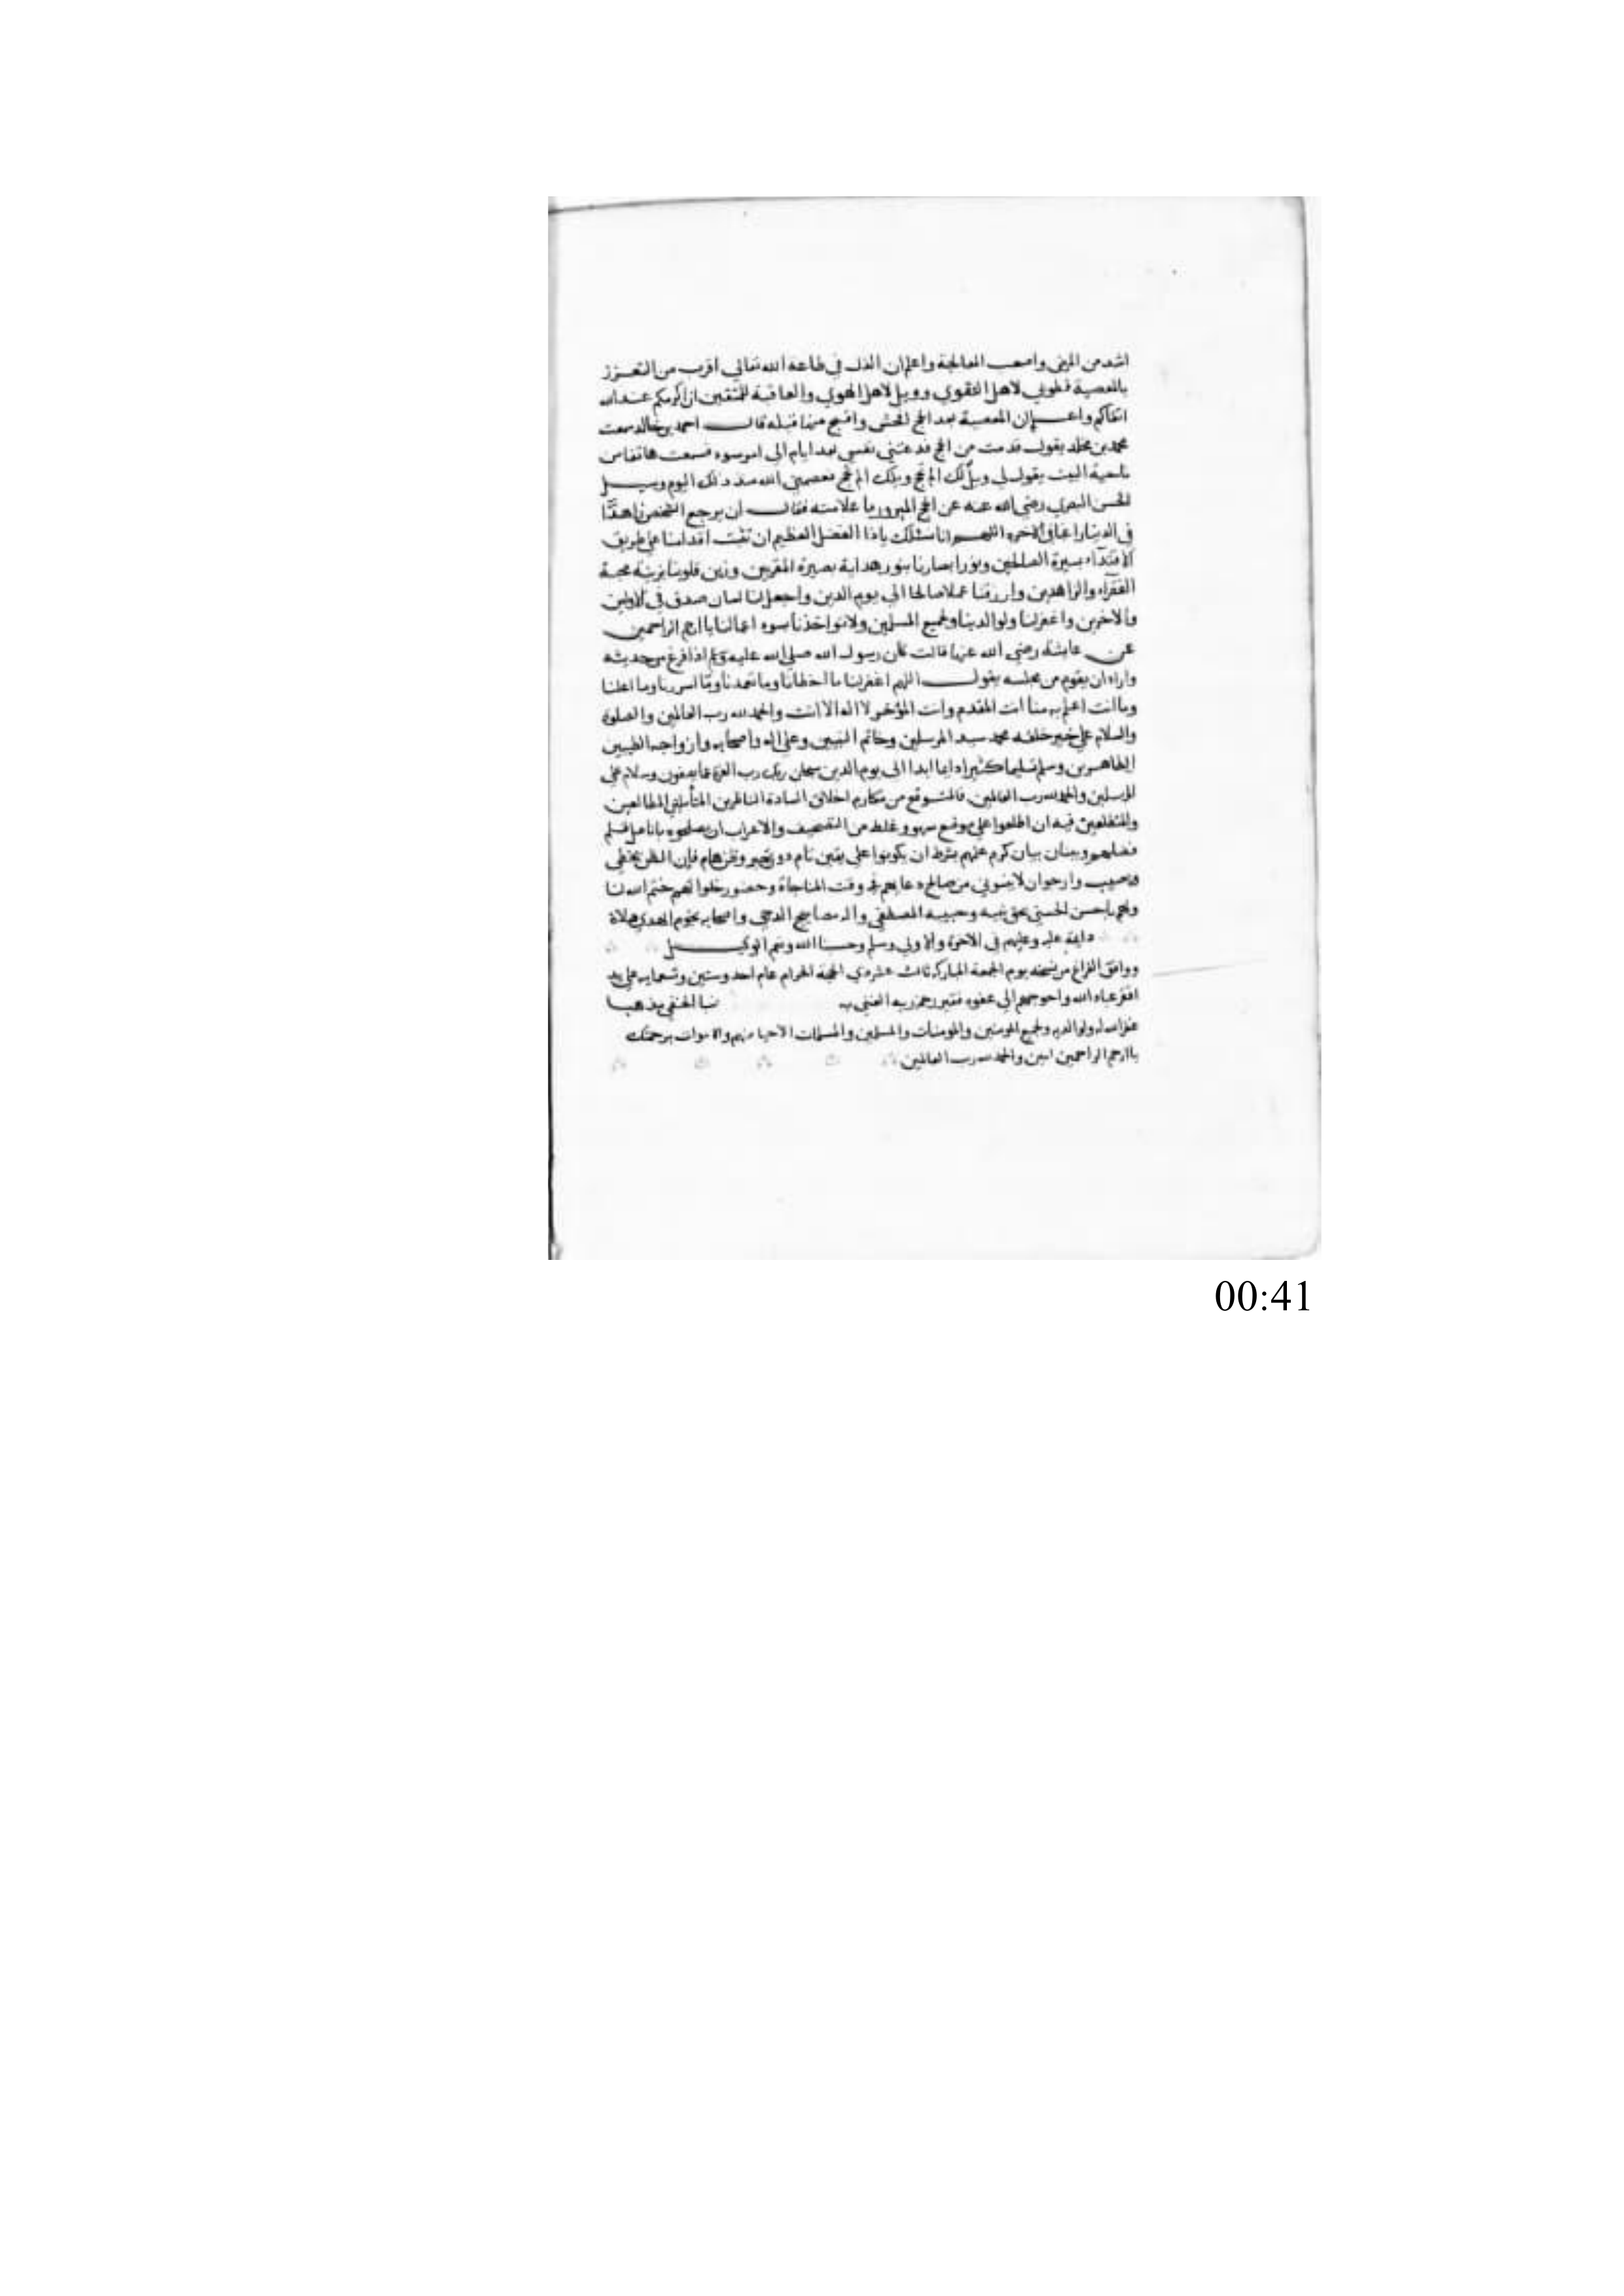 اشد من المرض واصعب المعالجة واعلم ان الذل في طاعة الله تعالي اقرب من التعزز
بالمعصية فطوبي لاهل التقوي وويل لاهل الهوي والعاقبة للمتقين ان اكرمكم عند الله
اتقاكم واعلم ان المعصية بعد الحج افحش واقبح منها قبله قال احمد بن خالد سمعت
محمد بن مخلد يقول قدمت من الحج فدعتني نفسي بعد ايام الي امر سوء فسمعت هاتفا من
ناحية البيت يقول لي ويلك الم تحج ويلك الم تحج فعصمني الله منذ ذلك اليوم وسيل
الحسن البصري رضي الله عنه عن الحج المبرور ما علامته فقال ان يرجع الشخص زاهدا
في الدنيا راغبا في الاخرة اللهم انا نسئلك ياذا الفضل العظيم ان تثبت اقدامنا علي طريق
الاقتداء بسيرة الصالحين ونور ابصارنا بنور هداية بصيرة المقربين وزين قلوبنا بزينة محبة
الفقراء والزاهدين وارزقنا عملا صالحا الي يوم الدين واجعل لنا لسان صدق في الاولين
والاخرين واغفر لنا ولوالدينا ولجميع المسلمين ولا تواخذنا بسوء اعمالنا يا ارحم الراحمين
عن عايشة رضي الله عنها قالت كان رسول الله صلي الله عليه وسلم اذا فرغ من حديثه
واراد ان يقوم من مجلسه يقول اللهم اغفر لنا ما اخطانا وما تعمدنا وما اسررنا وما اعلنا
وما انت اعلم به منا انت المقدم وانت المؤخر لا اله الا انت والحمد لله رب العالمين والصلوة
والسلام علي خير خلقه محمد سيد المرسلين وخاتم النبيين وعلي اله واصحابه وازواجه الطيبين
الطاهرين وسلم تسليما كثيرا دايما ابدا الي يوم الدين سبحان ربك رب العزة عما يصفون وسلام علي
المرسلين والحمد لله رب العالمين فالمتوقع من مكارم اخلاق السادة الناظرين المتأملين المطالعين
والمتطلعين فيه ان اطلعوا علي موضع سهو وغلط من التصحيف والاعراب ان يصلحوه بانامل قلم
فضلهم وبنان بيان كرم علمهم بشرط ان يكونوا علي يقين تام دون وظن هام فان الظن يخطي
ويصيب وارجو ان لا ينسوني من صالح دعايهم في وقت المناجاة وحضور خلواتهم ختم الله لنا
ولهم باحسن الحسني بحق نبيه وحبيبه المصطفي واله مصابيح الدجي واصحابه نجوم الهدي صلاة
دايمة عليه وعليهم في الاخرة والاولي وسلم وحسبنا الله ونعم الوكيل
ووافق الفراغ من نسخه يوم الجمعة المباركة ثالث عشر ذي الحجة الحرام عام احد وستين وتسعماية علي يد
افقر عباد الله واحوجهم الي عفوه فقير رحمة ربه الغني به الحنفي مذهبا
غفر الله له ولوالديه ولجميع المومنين والمومنات والمسلمين والمسلمات الاحيا منهم والاموات برحمتك
يا ارحم الراحمين امين والحمد لله رب العالمين
00:41